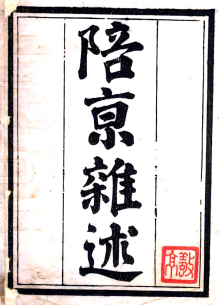 陪京雜述